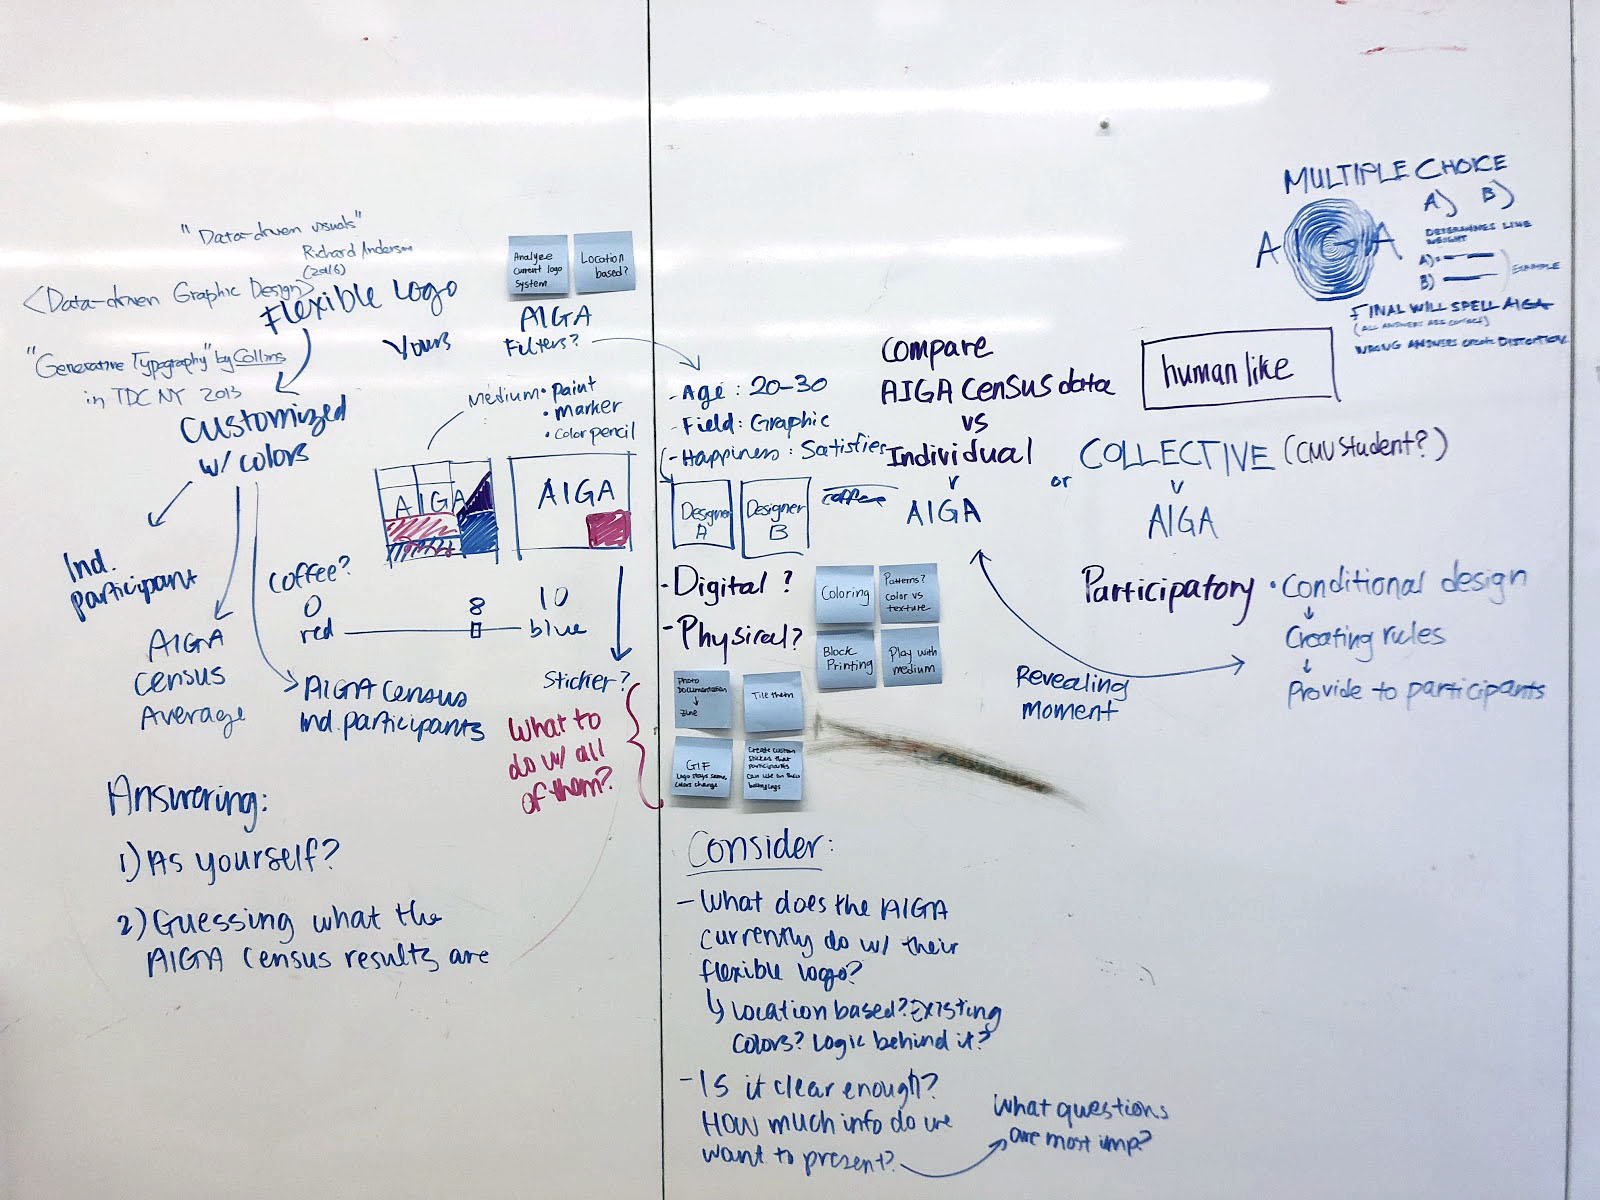 "Data-driven visuals"
Richard Anderson
(2016)
<Data-driven Graphic Design>
Flexible Logo
"Generative Typography" by Collins
in TDC NY 2013
Customized
w/ colors
Ind.
participant
AIGA
Census
Average
AIGA Census
Ind. participants
Coffee?
0
8
10
red
blue
Answering:
1) As yourself?
2) Guessing what the
AIGA Census results are
Analyze
current logo
System
Location
based?
Yours
AIGA
Filters?
Medium • paint
• marker
• color pencil
AIGA
AIGA
Sticker?
What to
do w/ all
of them?
- Age : 20-30
- Field: Graphic
- Happiness : Satisfies
Designer
A
Designer
B
coffee
- Digital ?
- Physical?
Coloring
Patterns?
color vs
texture
Block
Printing
Play with
medium
Photo
Documentation
Zine
Tile them
GIF
Logo stays same,
colors change
Create custom
stickers that
participants
can use on their
belongings
Compare
AIGA Census data
vs
Individual
AIGA
or
COLLECTIVE (CMU Student?)
AIGA
human like
MULTIPLE CHOICE
AIGA
A) B)
DETERMINES LINE
WEIGHT
A)
B)
EXAMPLE
FINAL WILL SPELL AIGA
(ALL ANSWERS ARE CORRECT)
WRONG ANSWERS CREATE DISTORTION
Participatory • Conditional design
Creating rules
Provide to participants
Revealing
moment
Consider:
- What does the AIGA
currently do w/ their
flexible logo?
Location based? Existing
colors? Logic behind it?
- Is it clear enough?
How much info do we
want to present?
What questions
are most imp?